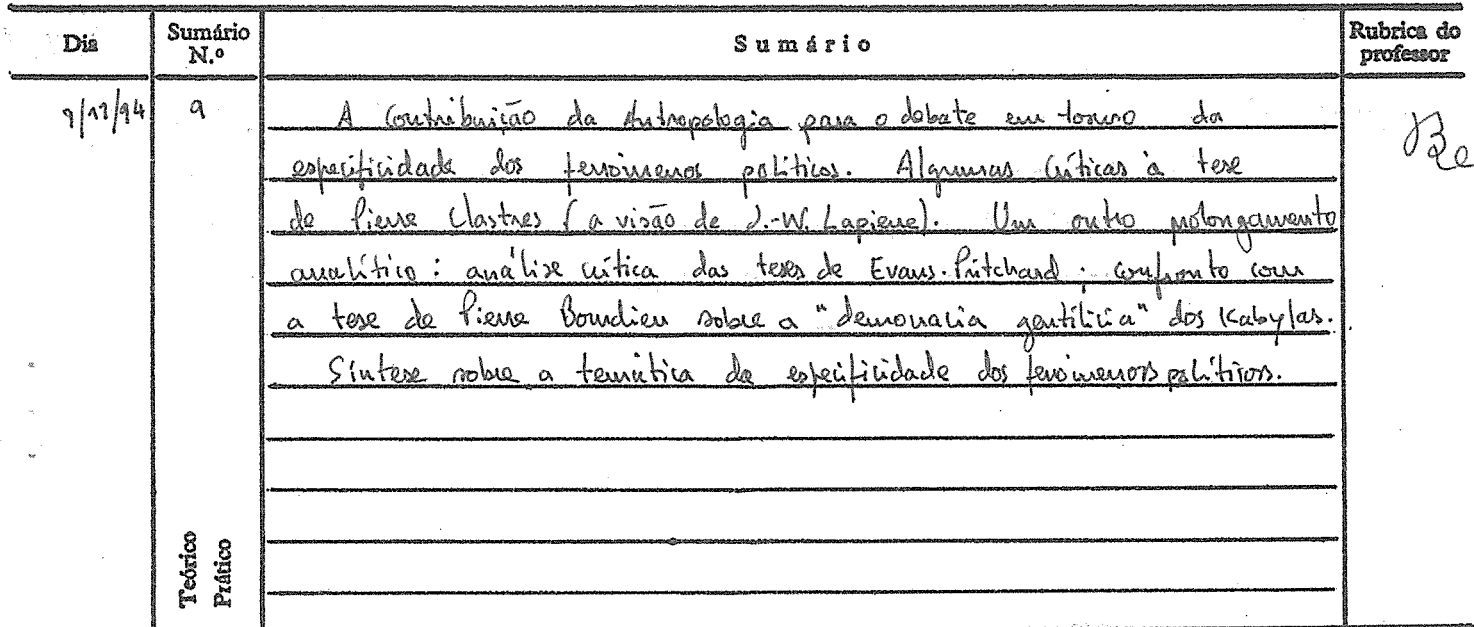 Dia Sumário N.º Sumário Rubrica do professor
9/11/94 9 A contribuição da Antropologia para o debate em torno da
especificidade dos fenómenos políticos. Algumas críticas à tese
de Pierre Clastres (a visão de J.-W. Lapierre). Um outro prolongamento
analítico: análise crítica das teses de Evans-Pritchard; confronto com
a tese de Pierre Bourdieu sobre a "democracia gentilícia" dos Kabylas.
Síntese sobre a temática da especificidade dos fenómenos políticos.
Teórico
Prático